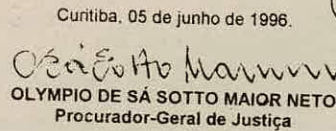 Curitiba, 05 de junho de 1996.
OLYMPIO DE SÁ SOTTO MAIOR NETO
Procurador-Geral de Justiça